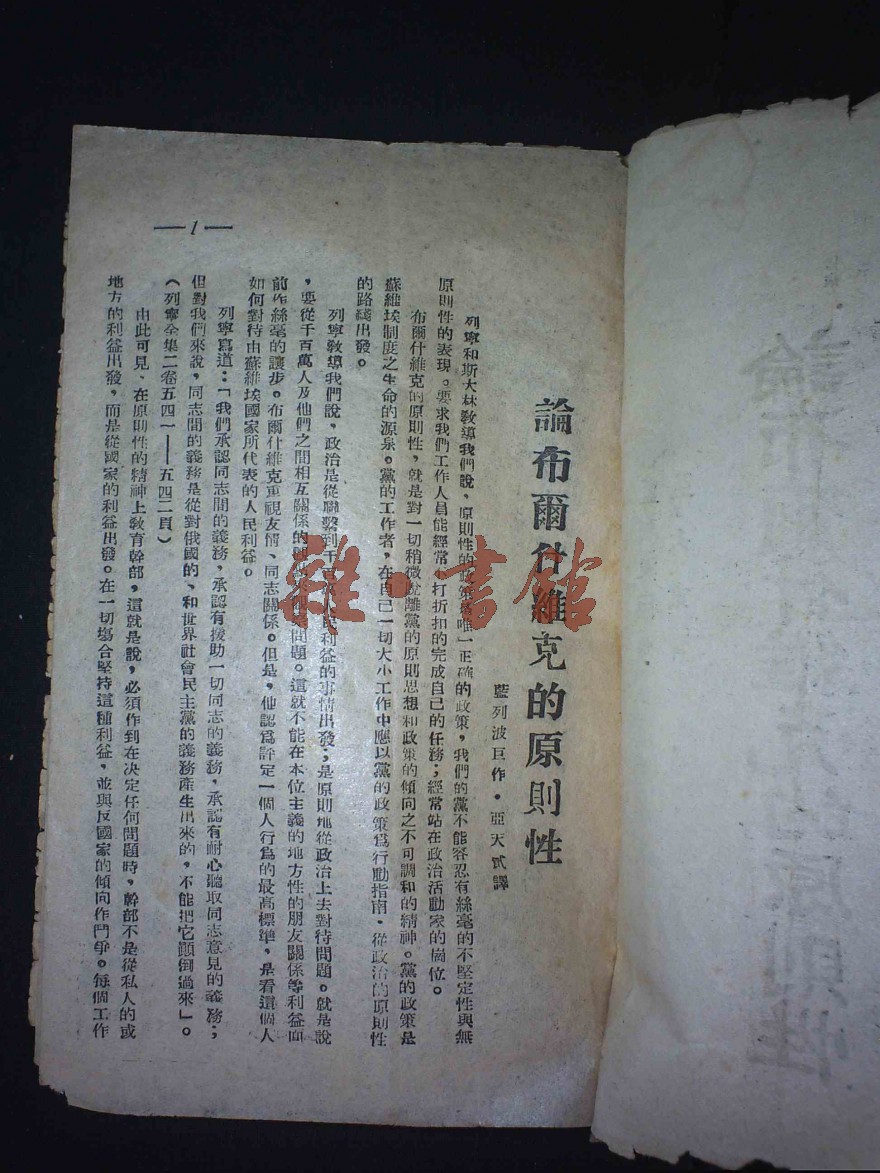 論布爾什維克的原則性
藍列波巨作·亞天試譯
列寧和斯大林敎導我們說，原則性的政策是唯一正確的政策，我們的黨不能容忍有絲毫的不堅定性與無
原則性的表現。要求我們工作人員能經常不打折扣的完成自己的任務；經常站在政治活動家的崗位。
布爾什維克的原則性，就是對一切稍微脫離黨的原則思想和政策的傾向之不可調和的精神。黨的政策是
蘇維埃制度之生命的源泉。黨的工作者，在自己一切大小工作中應以黨的政策爲行動指南，從政治的原則性
的路綫出發。
列寧敎導我們說，政治是從聯繫到千百萬人民利益的事情出發；是原則地從政治上去對待問題。就是說
，要從千百萬人及他們之間相互關係的觀點去觀察問題。這就不能在本位主義的地方性的朋友關係等利益面
前作絲毫的讓步。布爾什維克重視友情、同志關係。但是，他認爲評定一個人行爲的最高標準，是看這個人
如何對待由蘇維埃國家所代表的人民利益。
列寧寫道：「我們承認同志間的義務，承認有援助一切同志的義務，承認有耐心聽取同志意見的義務；
但對我們來說，同志間的義務是從對俄國的、和世界社會民主黨的義務產生出來的，不能把它顚倒過來」。
（列寧全集二卷五四一——五四二頁）
由此可見、在原則性的精神上敎育幹部，這就是說，必須作到在决定任何問題時，幹部不是從私人的或
地方的利益出發，而是從國家的利益出發。在一切塲合堅持這種利益，並與反國家的傾向作鬥爭。每個工作
—1—
雜·書館